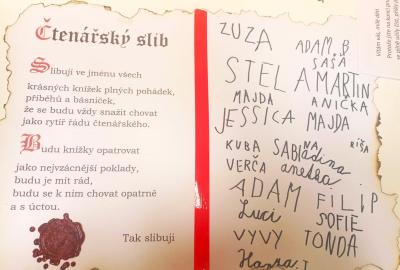 Čtenářský slib
Slibuji ve jménu všech
krásných knížek plných pohádek,
příběhů a básniček,
že se budu vždy snažit chovat
jako rytíř řádu čtenářského.
Budu knížky opatrovat
jako nejvzácnější poklady,
budu je mít rád,
budu se k nim chovat opatrně
a s úctou.
Tak slibuji
ZUZA
ADAM B.
SAŠA
STELA MARTIN
MAJDA ANIČKA
JESSICA MAJDA
KUBA SABINA
RÍŠA
VERČA anetka
ADAM FILIP
Luci SOFIE
VYVY TONDA
Hanka.T